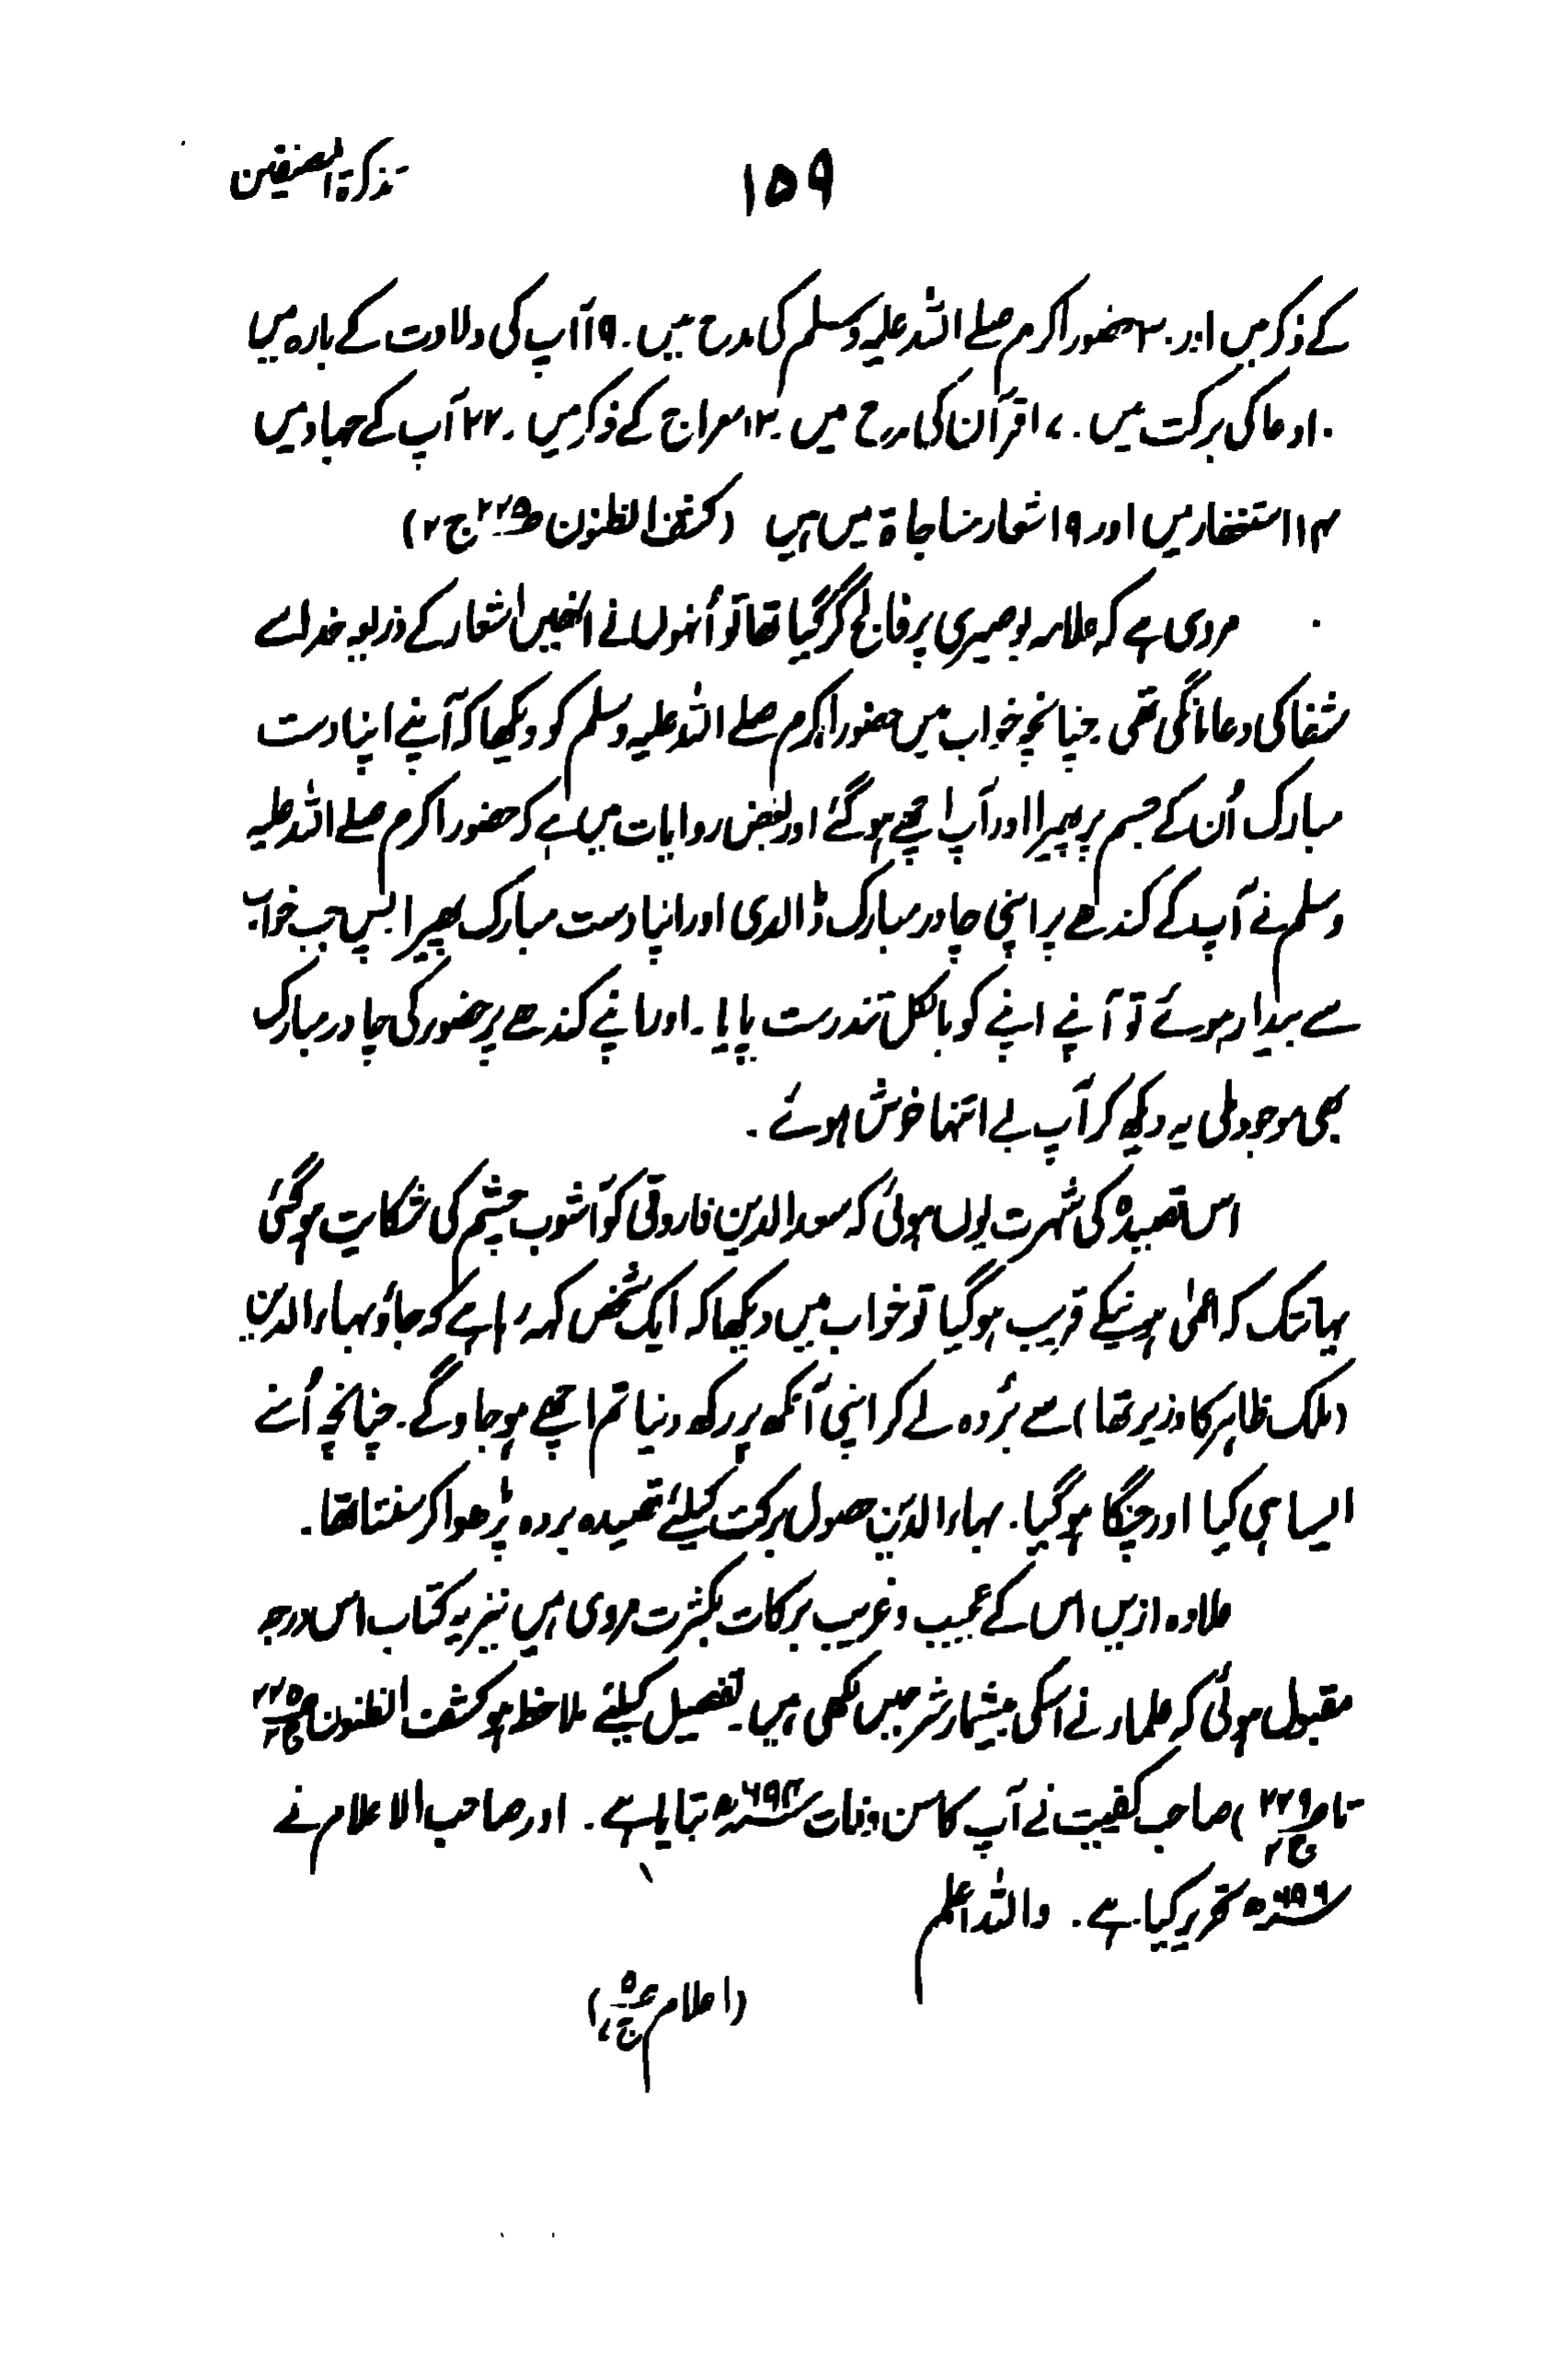 تذکرۃ المصنفین
۱۵۹
کے ذکر میں اور ۳۰ حضور اکرم صلے اللہ علیہ وسلم کی مدح میں۔ ۱۹ آپ کی ولادت کے بارہ میں
۱۰ دعا کی برکت میں۔ ۱۷ قرآن کی مدح میں ۱۳ معراج کے ذکر میں۔ ۲۲ آپ کے جہاد میں
۱۴ استغفار میں اور ۱۹ اشعار مناجاۃ میں ہیں (کشف الظنون ص۲۲۹ ج ۲)
مروی ہے کہ علامہ بوصیری پر فالج گر گیا تھا تو اُنہوں نے انہیں اشعار کے ذریعہ خدا سے
شفا کی دعا مانگی تھی چنانچہ خواب میں حضور اکرم صلے اللہ علیہ وسلم کو دیکھا کہ آپنے اپنا دست
مبارک اُن کے جسم پر پھیرا اور آپ اچھے ہو گئے اور بعض روایات میں ہے کہ حضور اکرم صلے اللہ علیہ
وسلم نے آپ کے کندھے پر اپنی چادر مبارک ڈالدی اور اپنا دست مبارک پھیرا پس جب خواب
سے بیدار ہوئے تو آپنے اپنے کو بالکل تندرست پایا۔ اور اپنے کندھے پر حضور کی چادر مبارک
بھی موجود ملی یہ دیکھ کر آپ بے انتہا خوش ہوئے۔
اس قصیدہ کی شہرت یوں ہوئی کہ سعد الدین فاروقی کو آشوب چشم کی شکایت ہو گئی
یہانتک کہ اعمیٰ ہونیکے قریب ہو گیا تو خواب میں دیکھا کہ ایک شخص کہہ رہا ہے کہ جاؤ بہاء الدین
(ملک ظاہر کا وزیر تھا) سے بُردہ لے کر اپنی آنکھ پر رکھ دنیا تم اچھے ہو جاوگے۔ چنانچہ اُسنے
ایسا ہی کیا اور چنگا ہو گیا۔ بہاء الدین حصول برکت کیلئے قصیدہ بردہ پڑھوا کر سنتا تھا۔
علاوہ ازیں اس کے عجیب و غریب برکات بکثرت مروی ہیں نیز یہ کتاب اس درجہ
مقبول ہوئی کہ علماء نے اسکی بیشمار شرحیں لکھی ہیں۔ تفصیل کیلئے ملاحظہ ہو کشف الظنون ص۲۲۵ ج۲
تا ص۲۲۹ ج۲) صاحب کفیت نے آپ کا سن وفات ۶۹۴ھ بتایا ہے۔ اور صاحب الاعلام نے
۶۹۶ھ تحریر کیا ہے۔ واللہ اعلم
(اعلام ج۷)